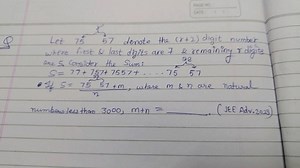 Q
r
Let 75 57 denote the (r+2) digit number
where first & last digits are 7 & remaining r digits
are 5. Consider the Sum:
98
S= 77+757+7557+.....75 57
If S= 75 57+m, where m & n are natural
n
numbers less than 3000, m+n = (JEE Adv.